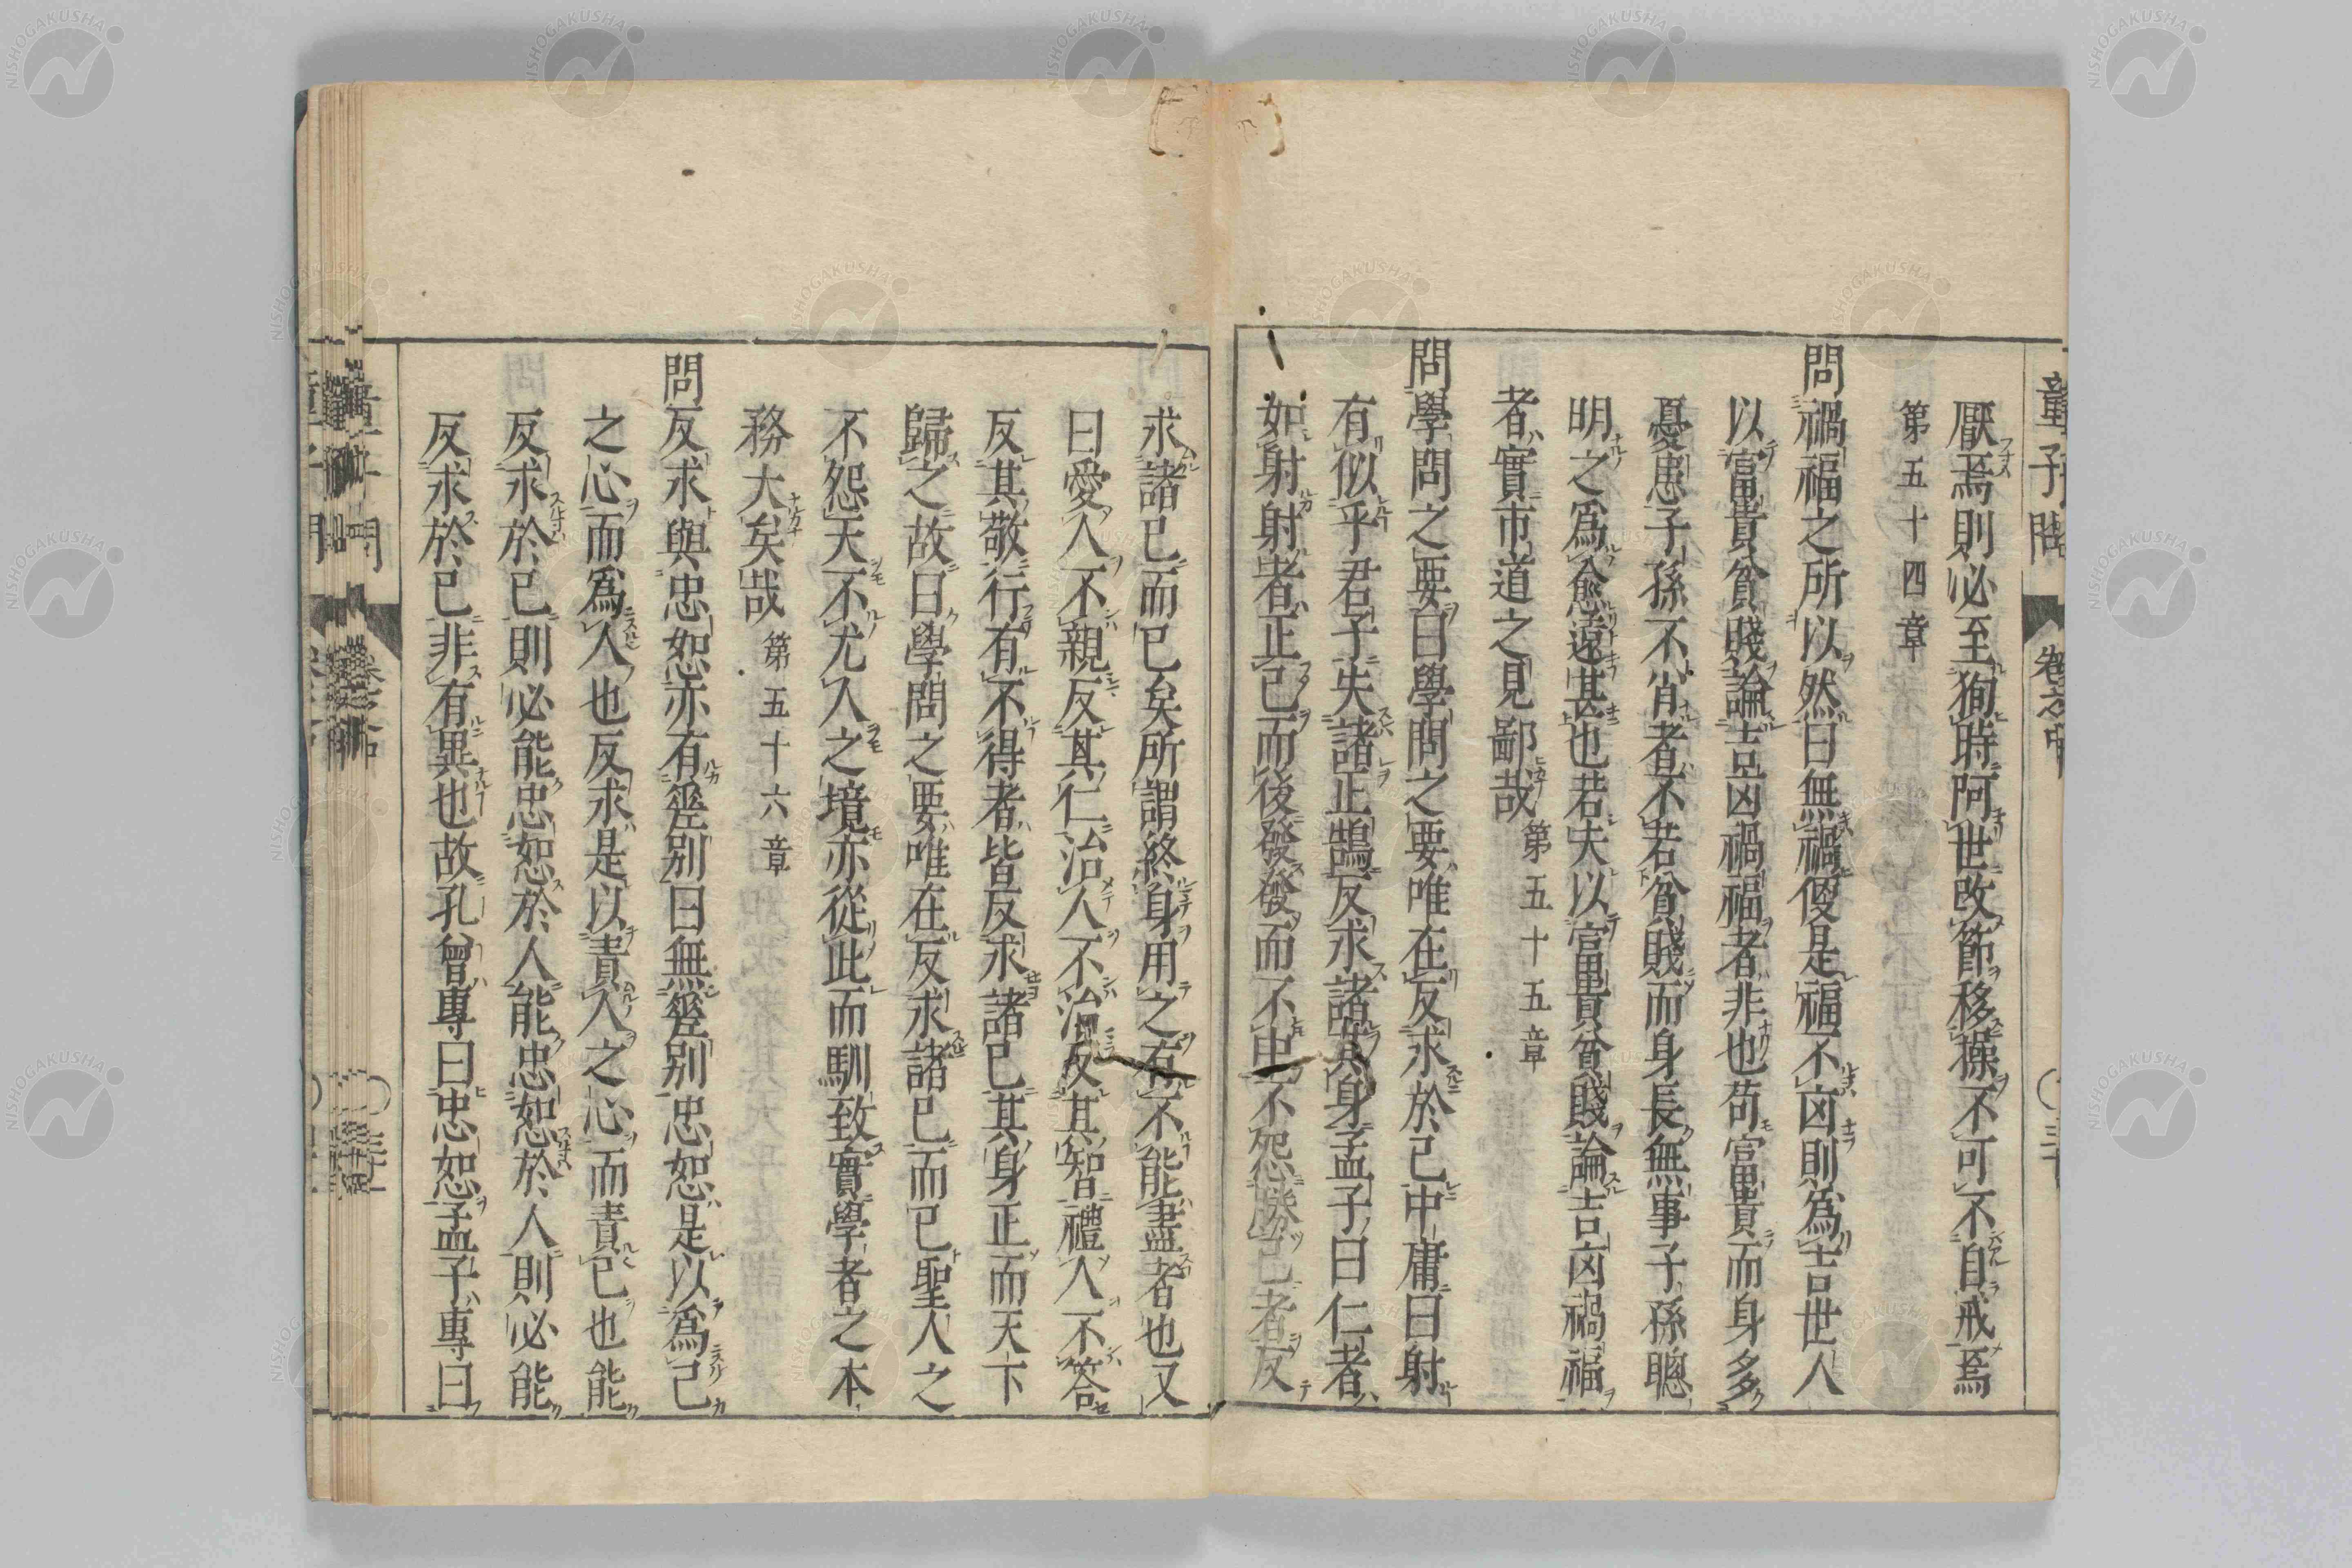 童子問 卷之中
厭焉則必至狥時阿世改節移操不可不自戒焉
第五十四章
問禍福之所以然曰無禍便是福不凶則為吉世人
以富貴貧賤論吉凶禍福者非也苟富貴而身多
憂患子孫不肖者不若貧賤而身長無事子孫聰
明之為愈遠甚也若夫以富貴貧賤論吉凶禍福
者實市道之見鄙哉 第五十五章
問學問之要曰學問之要唯在反求於己中庸曰射
有似乎君子失諸正鵠反求諸其身孟子曰仁者
如射射者正己而後發發而不中不怨勝己者反
求諸己而已矣所謂終身用之有不能盡者也又
曰愛人不親反其仁治人不治反其智禮人不答
反其敬行有不得者皆反求諸己其身正而天下
歸之故曰學問之要唯在反求諸己而已聖人之
不怨天不尤人之境亦從此而馴致實學者之本
務大矣哉 第五十六章
問反求與忠恕亦有差別曰無差別忠恕是以為己
之心而為人也反求是以責人之心而責己也能
反求於己則必能忠恕於人能忠恕於人則必能
反求於己非有異也故孔曾專曰忠恕孟子專曰
童子問